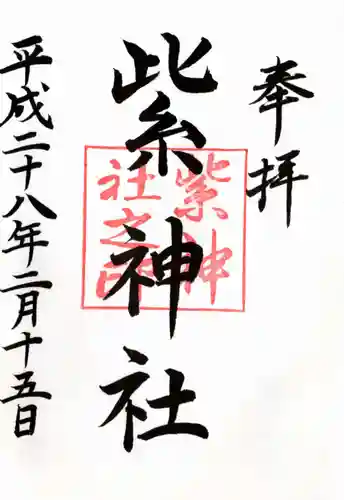 奉拝
紫神社
紫神
社之印
平成二十八年二月十五日